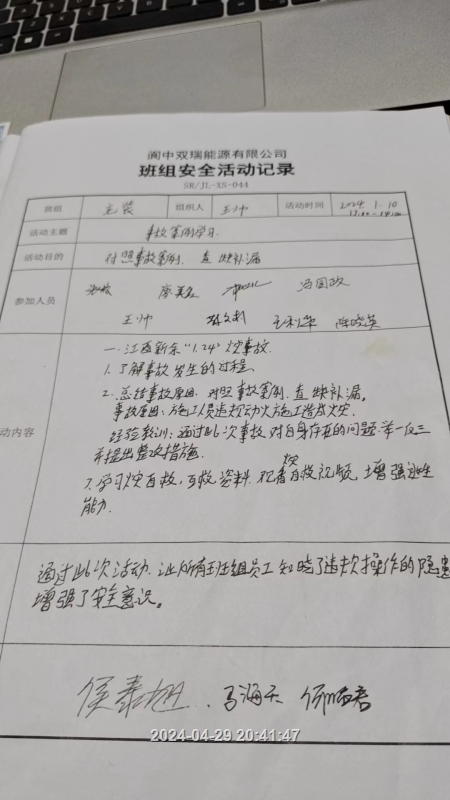 阆中双瑞能源有限公司
班组安全活动记录
SR/JL-XS-044
班组 组织人 王帅 活动时间 2024.1.10
活动主题 事故案例学习.
活动目的 对照事故案例、查缺补漏
参加人员 廖美名 冯国政
王帅 陈晓英
动内容
一.江西新余"1.24"火灾事故.
1.了解事故发生的过程.
2.总结事故原因.对照事故案例.查缺补漏。
事故原因:施工人员违规动火施工造成火灾.
经验教训:通过此次事故对自身存在的问题举一反三
并提出整改措施.
3.学习火灾自救,互救资料.观看火灾自救视频,增强逃生
能力.
通过此次活动.让所有班组员工知晓了违规操作的隐患
增强了安全意识。
侯泰旭.马海天
2024-04-29 20:41:47